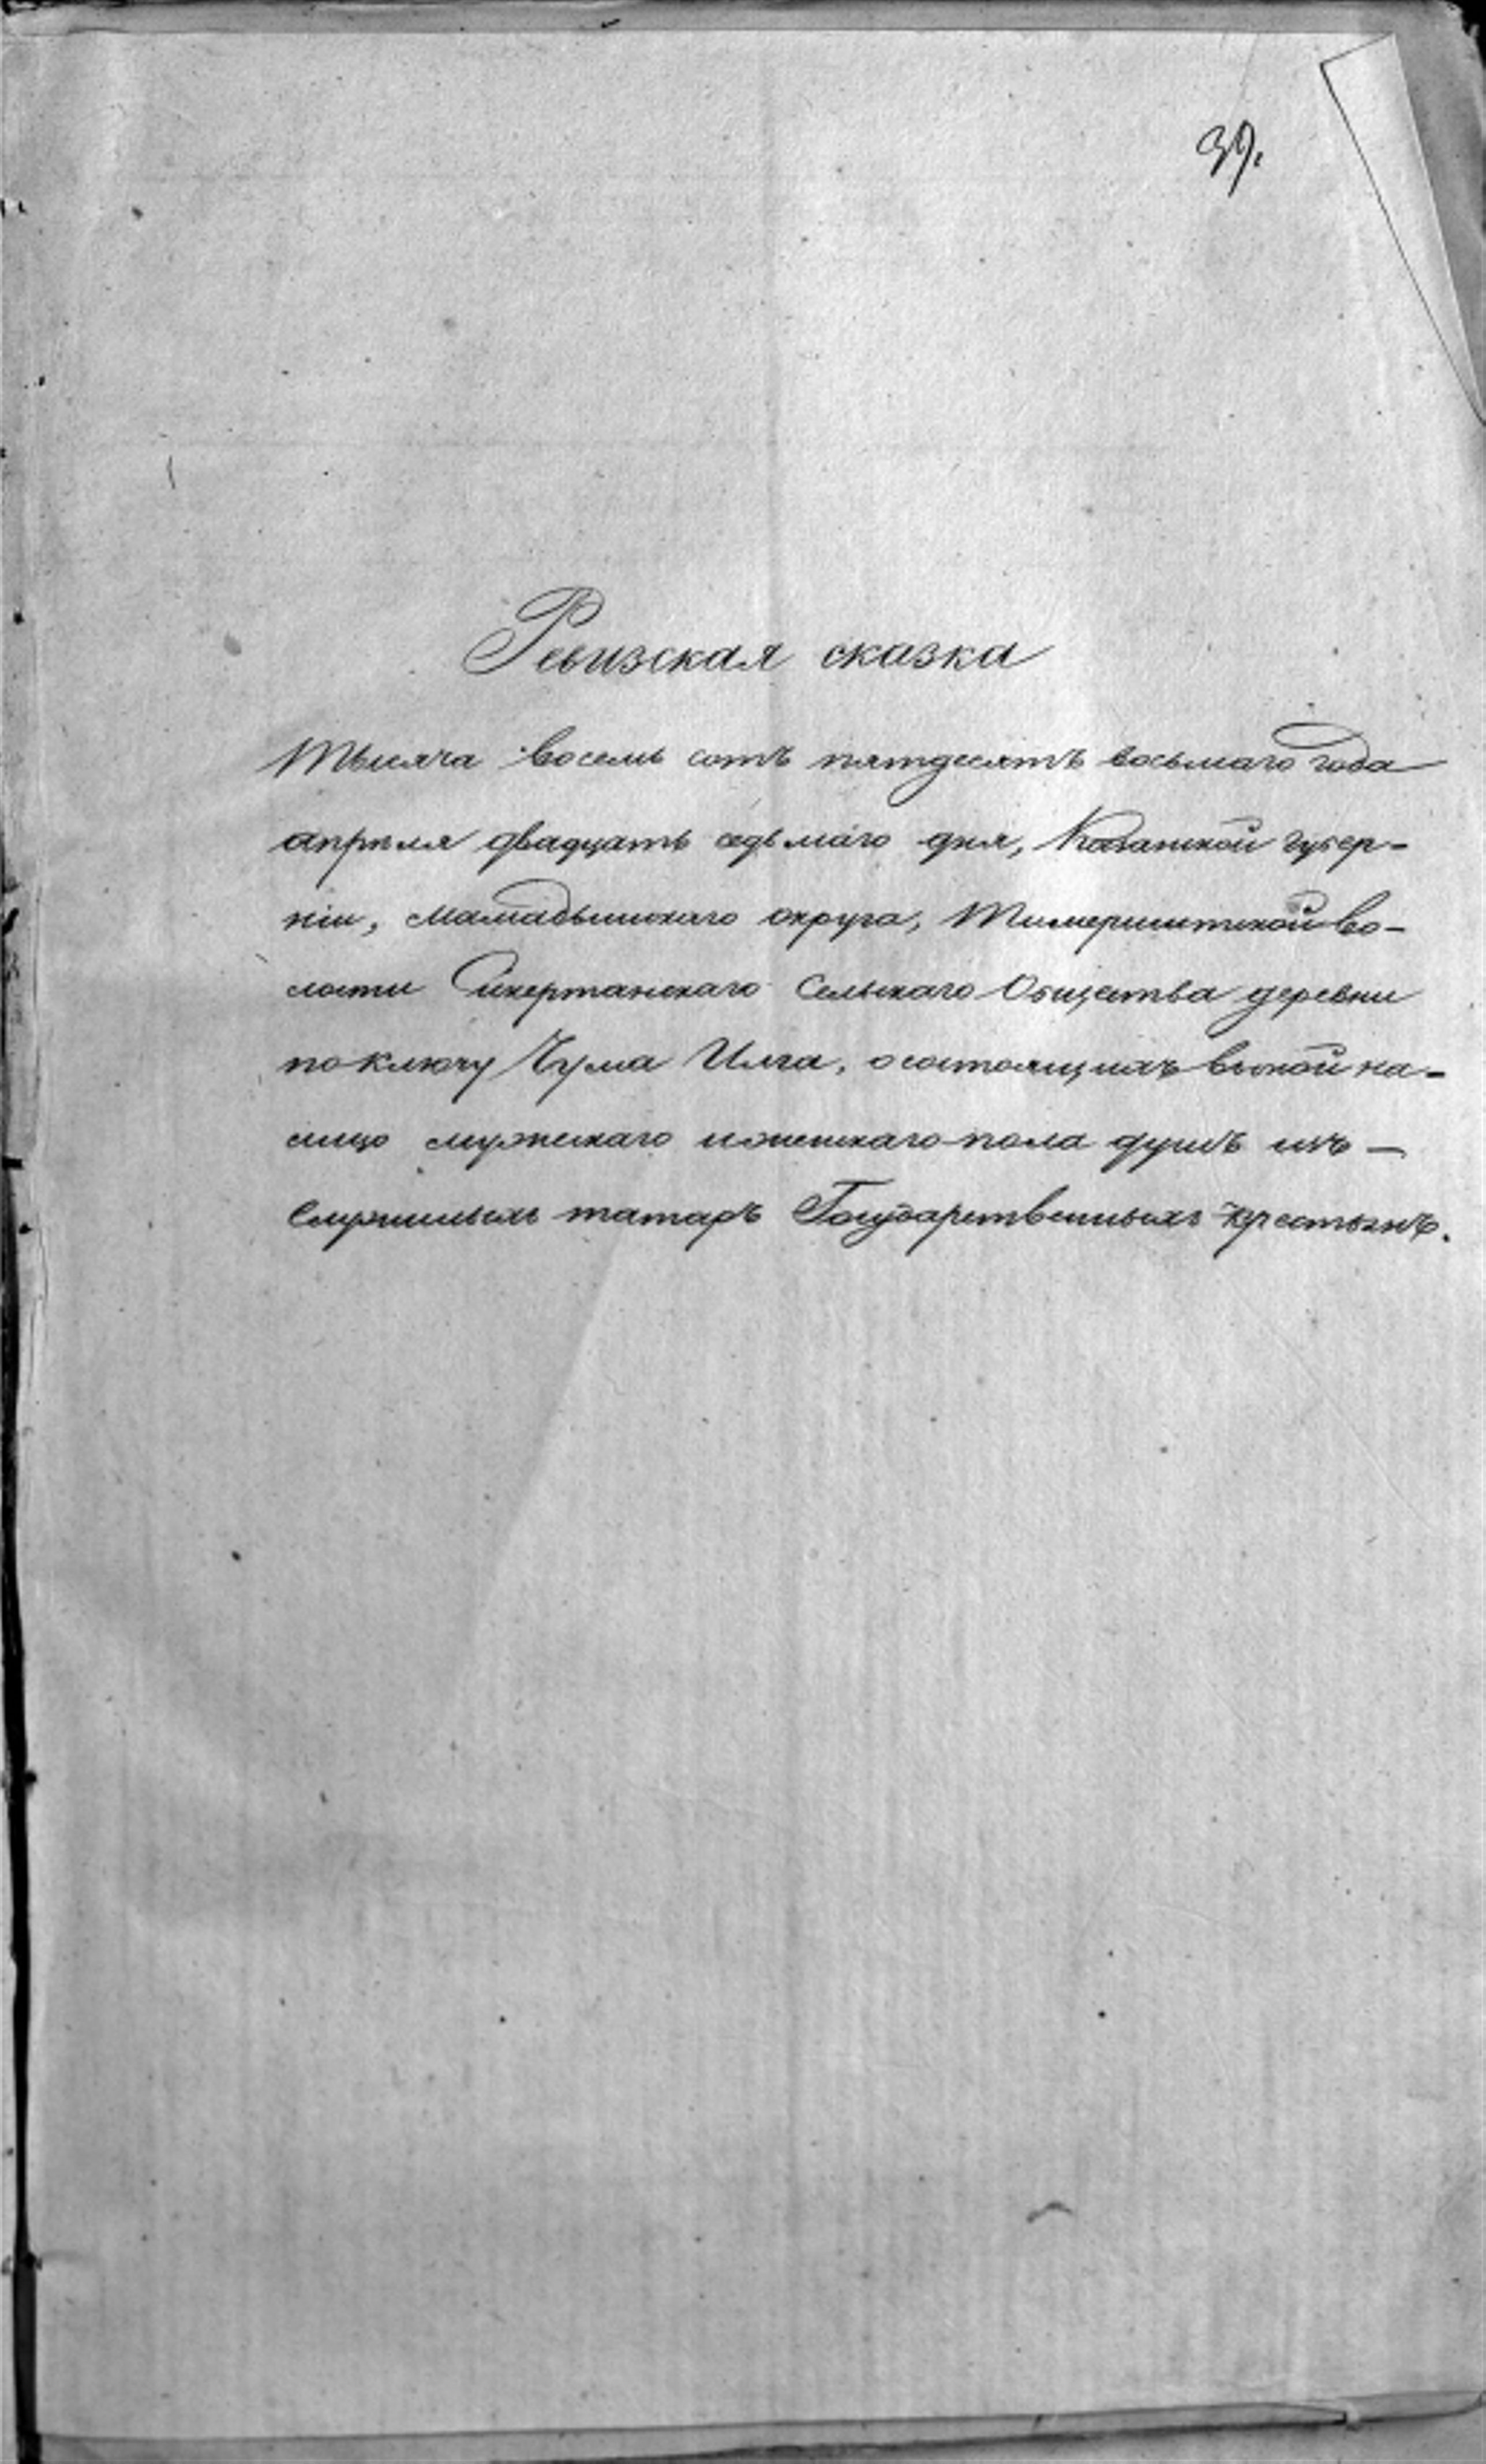 39.
Ревизская сказка
Тысяча восемь сотъ пятдесятъ восьмаго года
апреля двадцать седьмаго дня, Казанской губер-
ніи, Мамадышскаго округа, Тимершитской во-
лости Сикертанскаго Сельскаго Общества деревни
по ключу Чума Илга, о состоящихъ въ оной на-
лицо мужескаго и женскаго пола душъ изъ —
Служилыхъ татаръ Государственныхъ крестьянъ.